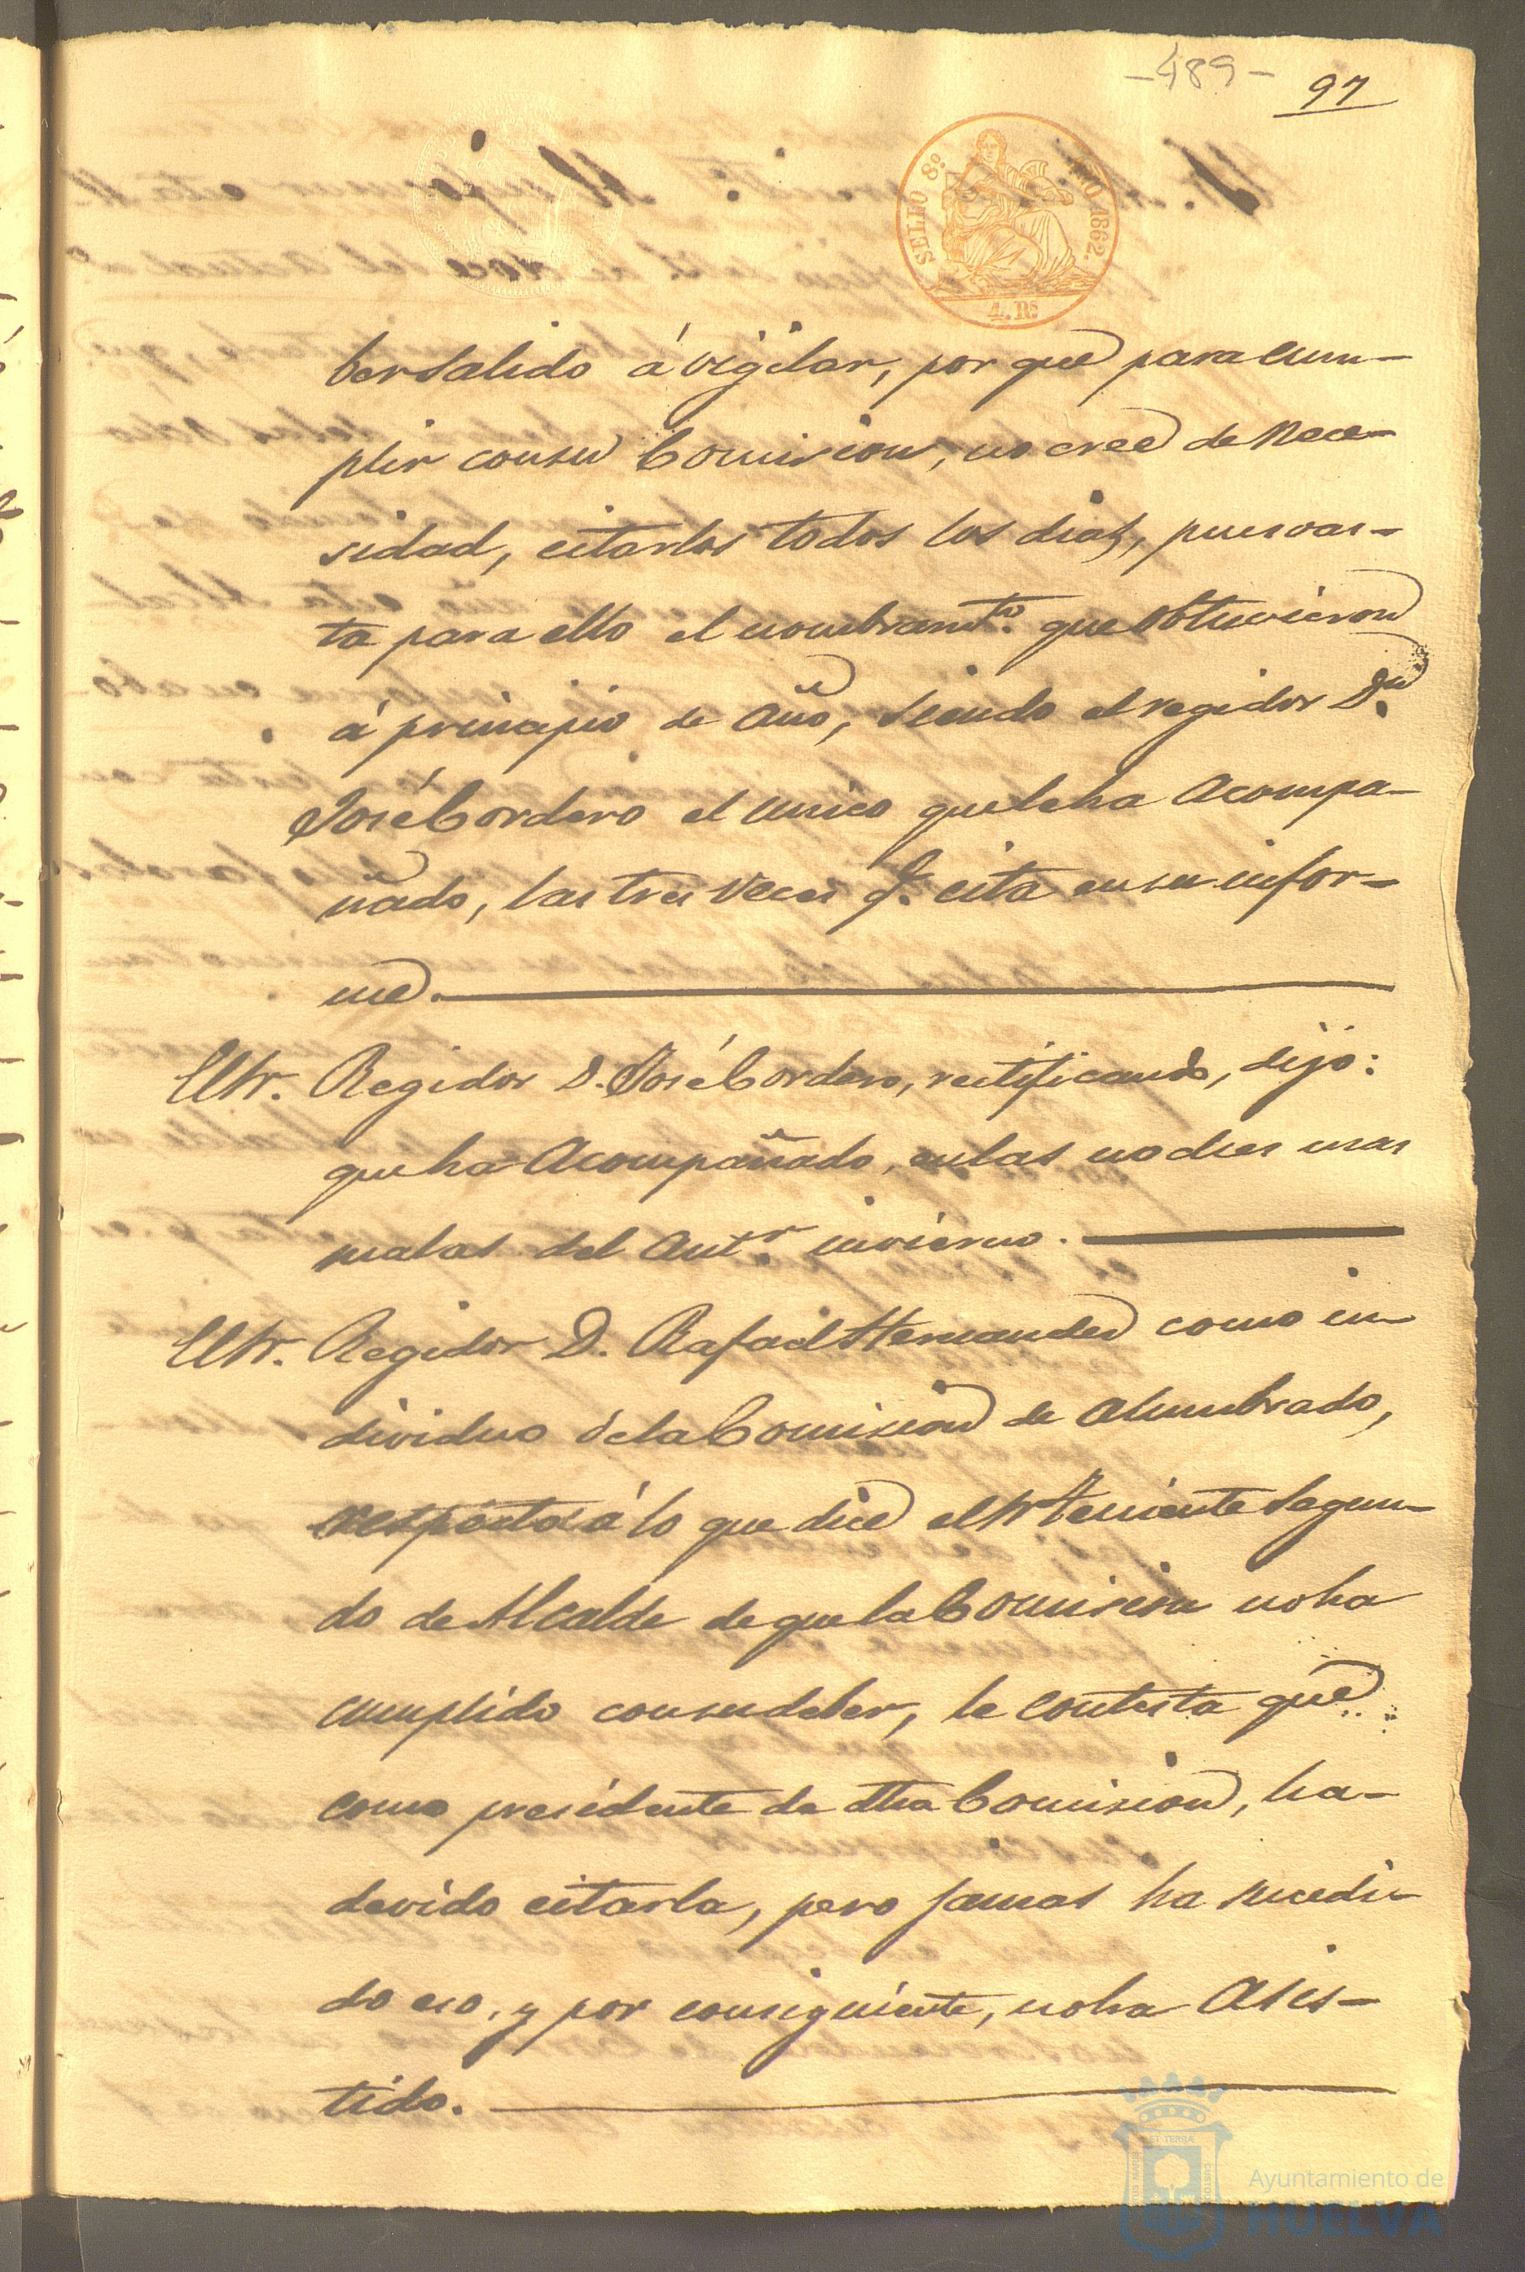 -489-
97
SELLO 8.º AÑO 1862.
4. Rs
ber salido á vigilar, por que para cum-
plir con su Comision, no cree de nece-
sidad, citarlos todos los dias, pues vas-
ta para ello el nombramto. que obtuvieron
á principio de año, siendo el regidor Dn.
José Cordero el unico que le ha acompa-
ñado, las tres veces q. cita en su infor-
me.
El Sr. Regidor D. José Cordero, rectificando, dijo:
que ha acompañado, en las noches mas
malas del antr. invierno.
El Sr. Regidor D. Rafael Hernandez como in-
dividuo de la Comision de alumbrado,
respecto á lo que dice el Sr Teniente segun-
do de Alcalde de que la Comision no ha
cumplido con su deber, le contesta que
como presidente de dha Comision, ha
devido citarla, pero jamas ha sucedi-
do eso, y por consiguiente, no ha asis-
tido.
Ayuntamiento de
HUELVA